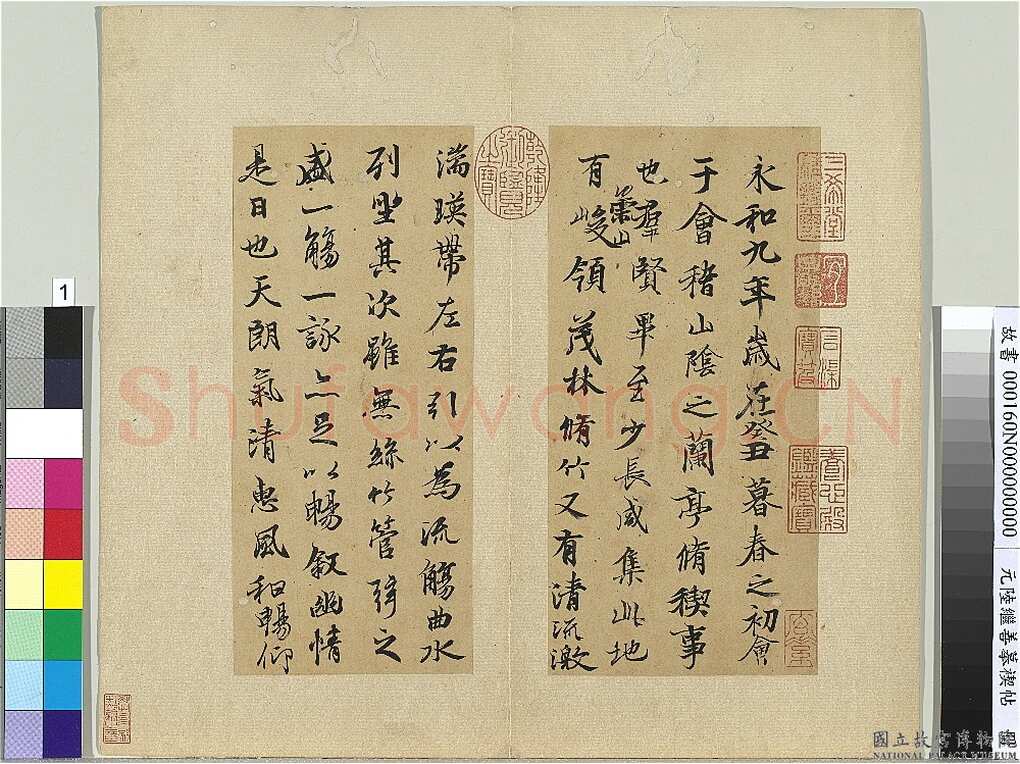 永和九年歲在癸丑暮春之初會
于會稽山陰之蘭亭脩稧事
也羣賢畢至少長咸集此地
有崇山峻領茂林脩竹又有清流激
湍暎帶左右引以為流觴曲水
列坐其次雖無絲竹管弦之
盛一觴一詠亦足以暢敘幽情
是日也天朗氣清惠風和暢仰
三希堂
乾隆御覽之寶
養心殿鑑藏寶
1
故書000160N000000000
元陸繼善摹禊帖
Shufawang.CN
國立故宮博物院
NATIONAL PALACE MUSEUM